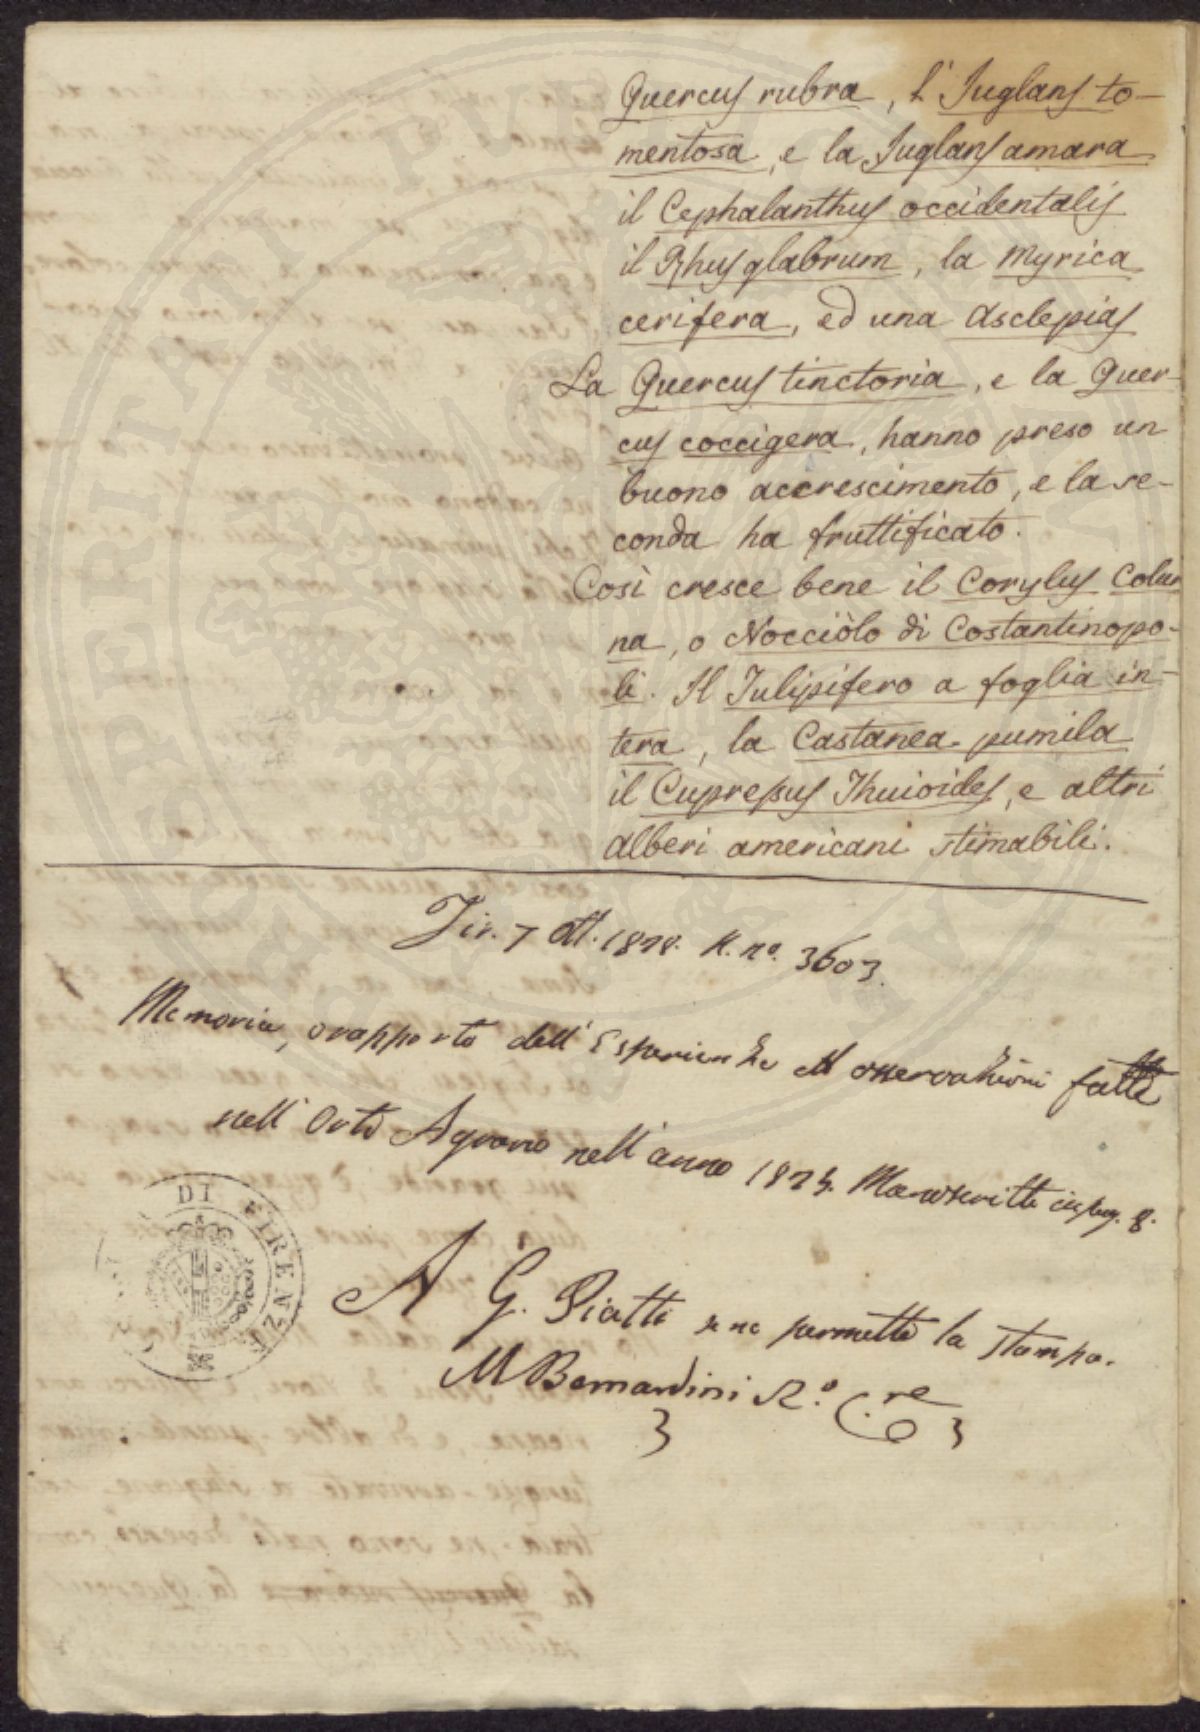 Quercus rubra, l'Juglans to-
mentosa, e la Juglans amara
il Cephalanthus occidentalis
il Rhus glabrum, la Myrica
cerifera, ed una Asclepias
La Quercus tinctoria, e la Quer-
cus coccigera, hanno preso un
buono accrescimento, e la se-
conda ha fruttificato.
Così cresce bene il Corylus Colur
na, o Nocciòlo di Costantinopo-
li. Il Tulipifero a foglia in-
tera, la Castanea pumila
il Cupressus Thuioides, e altri
alberi americani stimabili.
Fir. 7 ott. 1828. R. no. 3603.
Memoria, o rapporto dell'Esperienze ed osservazioni fatte
nell'Orto Agrario nell'anno 1823. Manoscritto in pag. 8.
A G. Piatti se ne permette la stampa.
M Bernardini Ro. C.re
DI FIRENZE
PROSPERITATI PVBLICAE AVGENDAE